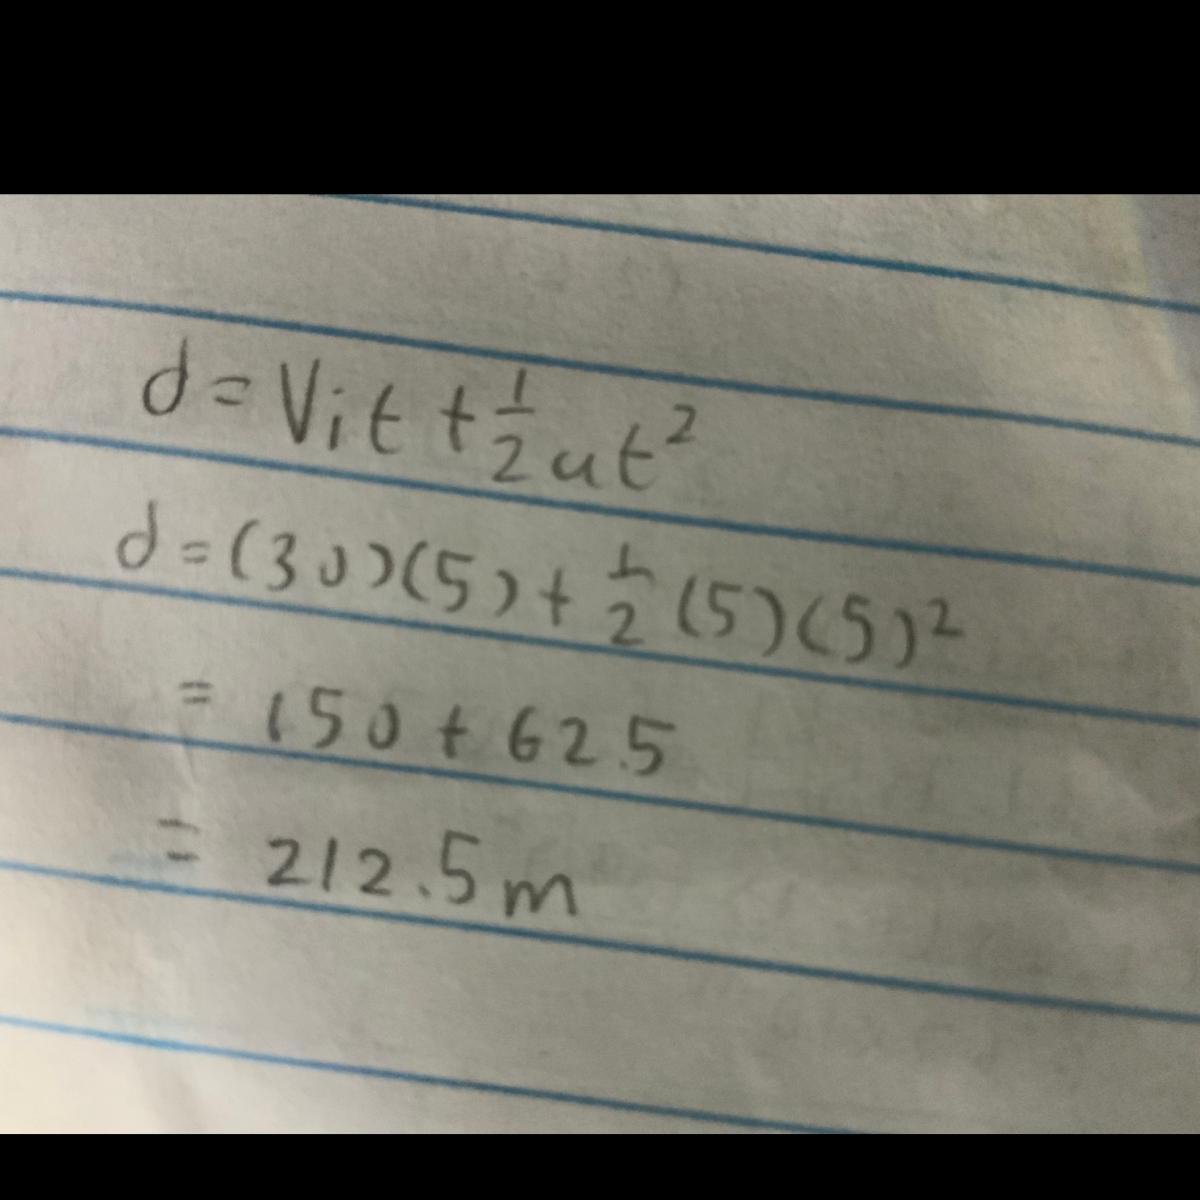 d = Vit + 1/2 at²
d = (30)(5) + 1/2 (5)(5)²
= 150 + 62.5
= 212.5 m